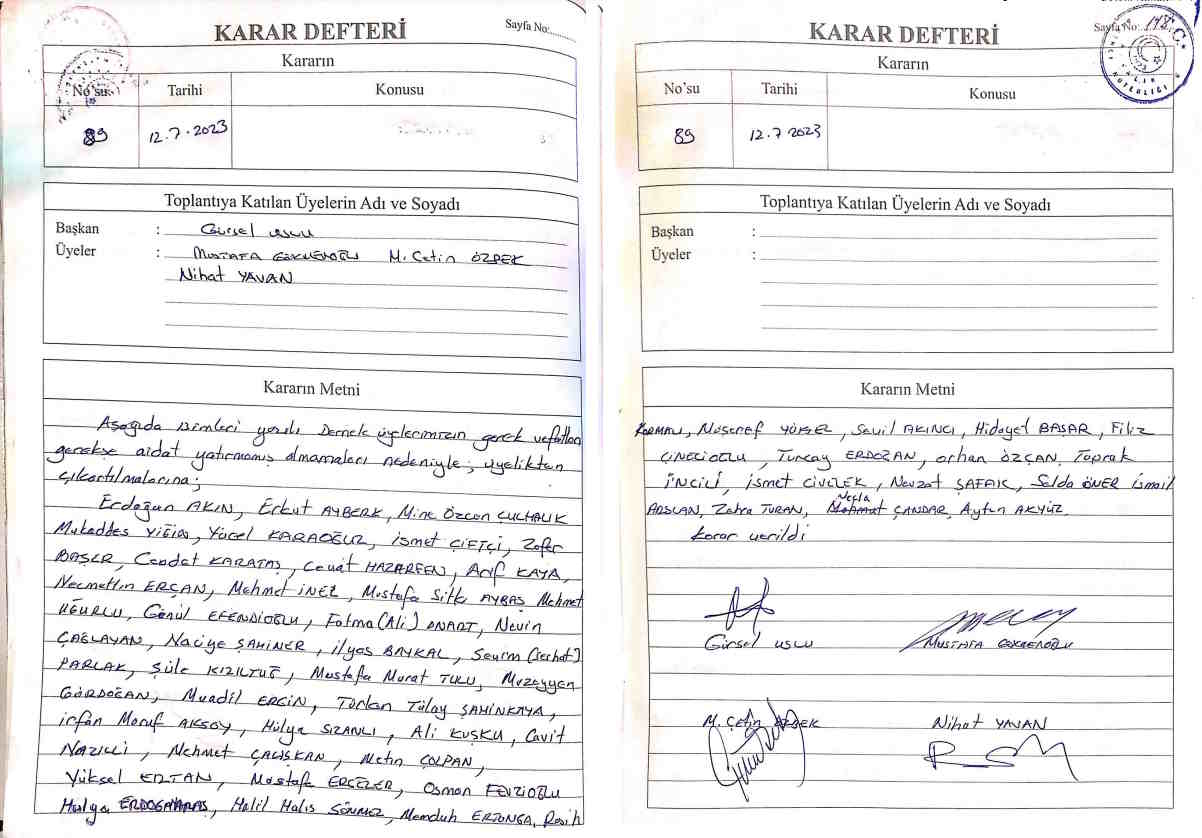 KARAR DEFTERİ
Sayfa No:
Kararın
No'su
Tarihi
Konusu
89
12.7.2023
Toplantıya Katılan Üyelerin Adı ve Soyadı
Başkan : Gürsel USLU
Üyeler : MUSTAFA GÖKMENOĞLU M. Çetin ÖZPEK
Nihat YAVAN
Kararın Metni
Aşağıda isimleri yazılı Dernek üyelerimizin gerek vefatları
gerekse aidat yatırmamış olmamaları nedeniyle; üyelikten
çıkartılmalarına;
Erdoğan AKIN, Erkut AYBERK, Mine Özcan ÇULHALIK
Mukaddes YİĞİN, Yücel KARAOĞUZ, ismet ÇİFTÇİ, Zafer
BAŞER, Cevdet KARATAŞ, Cevat HAZARFEN, Arif KAYA,
Necmettin ERÇAN, Mehmet İNEL, Mustafa Sıtkı AYBAŞ Mehmet
UĞURLU, Gönül EFENDİOĞLU, Fatma (Ali) ONART, Nevin
ÇAĞLAYAN, Naciye ŞAHİNER, ilyas BAYKAL, (Serhat)
PARLAK, Şüle KIZILTUĞ, Mustafa Murat TULU, Müzeyyen
GÜRDOĞAN, Muadil ERGİN, Türkan Tülay ŞAHİNKAYA,
irfan Maruf AKSOY, Hülya SIZANLI, Ali KUŞKU, Cavit
NAZİLLİ, Mehmet ÇALIŞKAN, Metin ÇOLPAN,
Yüksel ERTAN, Mustafa ERGEZER, Osman FEVZİOĞLU
Hülya Halil Halis SÖNMEZ, Memduh ERTONGA, Rasih
KARAR DEFTERİ
Sayfa No: 178
Kararın
No'su
Tarihi
Konusu
89
12.7.2023
Toplantıya Katılan Üyelerin Adı ve Soyadı
Başkan :
Üyeler :
Kararın Metni
KORMALI, Müşeref YÜKSEL, Sevil AKINCI, Hidayet BAŞAR, Filiz
ÇINECİOĞLU, Tuncay ERDOĞAN, orhan ÖZÇAN, Toprak
İNCİLİ, ismet CİVELEK, Nevzat ŞAFAK, Selda ÖNER ismail
ARSLAN, Zehra TURAN, Necla ÇANDAR, Aytun AKYÜZ
Karar verildi
Gürsel USLU
MUSTAFA GÖKMENOĞLU
M. Çetin ÖZPEK
Nihat YAVAN